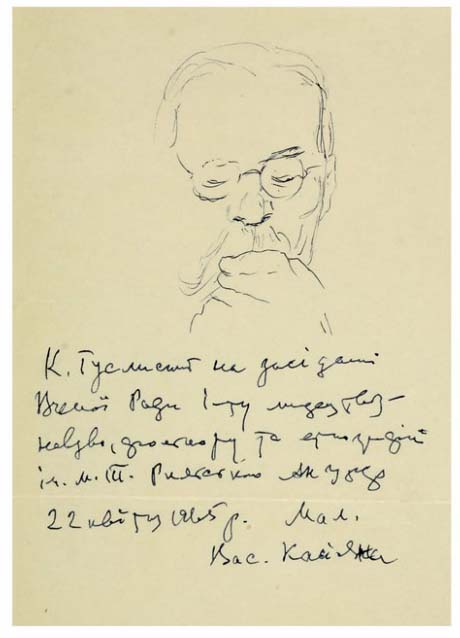 К. Гуслистий на засіданні
Вченої Ради Ін-ту мистецтвоз-
навства, фольклору та етнографії
ім. М. Т. Рильського АН УРСР
22 квітня 1965 р. Мал.
Вас. Касіян